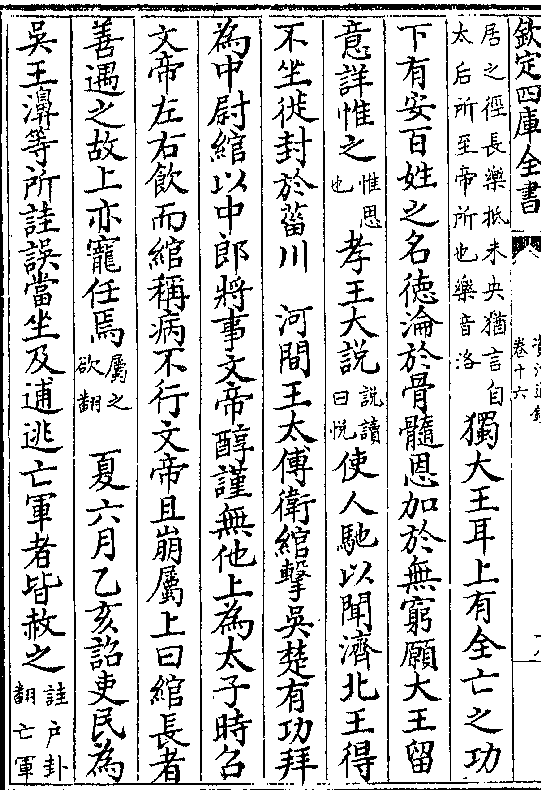 欽定四庫全書
卷十六
居之徑長樂抵未央猶言自
太后所至帝所也樂音洛
獨大王耳上有全亡之功
下有安百姓之名德淪於骨髓恩加於無窮願大王留
意詳惟之惟思也孝王大說說讀曰悅使人馳以聞濟北王得
不坐徙封於菑川 河間王太傅衛綰擊吳楚有功拜
為中尉綰以中郎將事文帝醇謹無他上為太子時召
文帝左右飲而綰稱病不行文帝且崩屬上曰綰長者
善遇之故上亦寵任焉屬之欲翻 夏六月乙亥詔吏民為
吳王濞等所詿誤當坐及逋逃亡軍者皆赦之詿戶卦翻亡軍